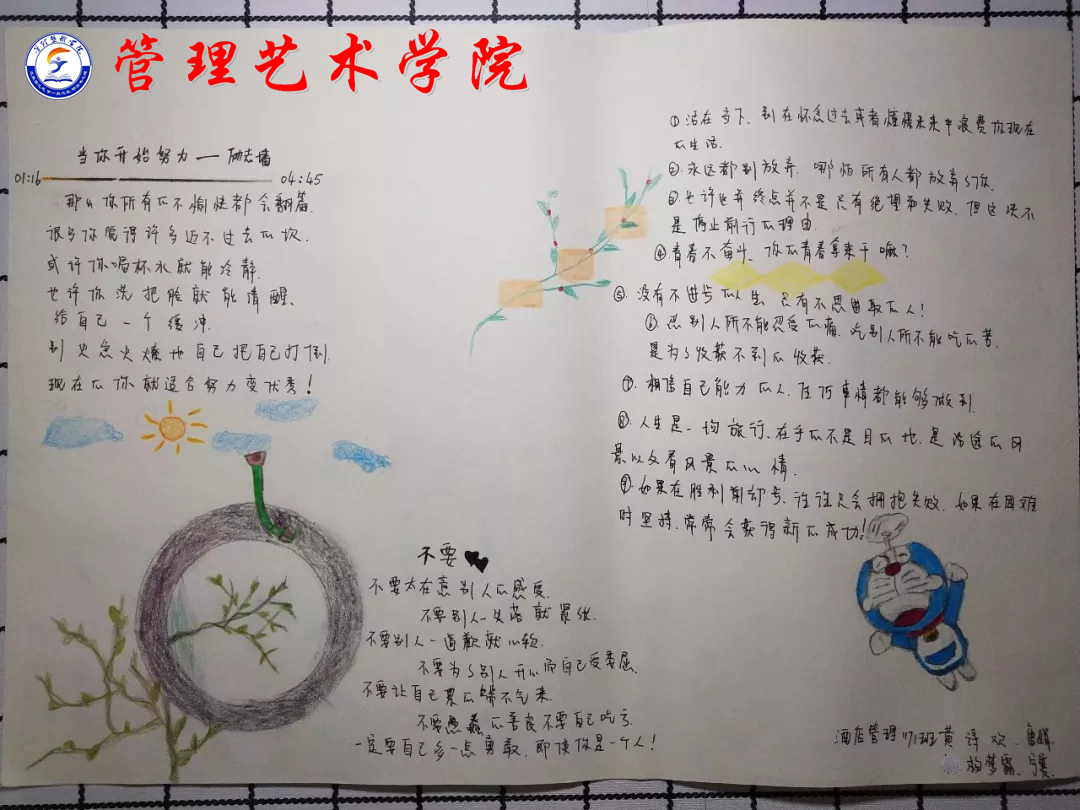 管理艺术学院
当你开始努力——励志墙
01:16 04:45
那么你所有的不愉快都会翻篇.
很多你觉得许多迈不过去的坎.
或许你喝杯水就能冷静.
也许你洗把脸就能清醒.
给自己一个缓冲.
别火急火燎地自己把自己打倒.
现在的你就适合努力变优秀!
①活在当下、别在怀念过去或者憧憬未来中浪费你现在
的生活.
②.永远都别放弃.哪怕所有人都放弃了你.
③也许世界终点并不是只有绝望和失败.但这决不
是停止前行的理由.
④青春不奋斗、你的青春拿来干嘛?
⑤.没有不进步的人生.只有不思进取的人!
⑥忍别人所不能忍受的痛.吃别人所不能吃的苦.
是为了收获不到的收获.
⑦.相信自己能力的人.任何事情都能够做到.
⑧.人生是一场旅行.在乎的不是目的地.是沿途的风
景以及看风景的心情.
⑨.如果在胜利前却步、往往只会拥抱失败.如果在困难
时坚持.常常会获得新的成功!
不要
不要太在意别人的感受.
不要别人一失落就紧张.
不要别人一道歉就心软.
不要为了别人开心而自己受委屈.
不要让自己累的喘不气来.
不要愚蠢的善良不要自己吃亏.
一定要自己多一点勇敢.即使你是一个人!
酒店管理1791班黄诗欢.